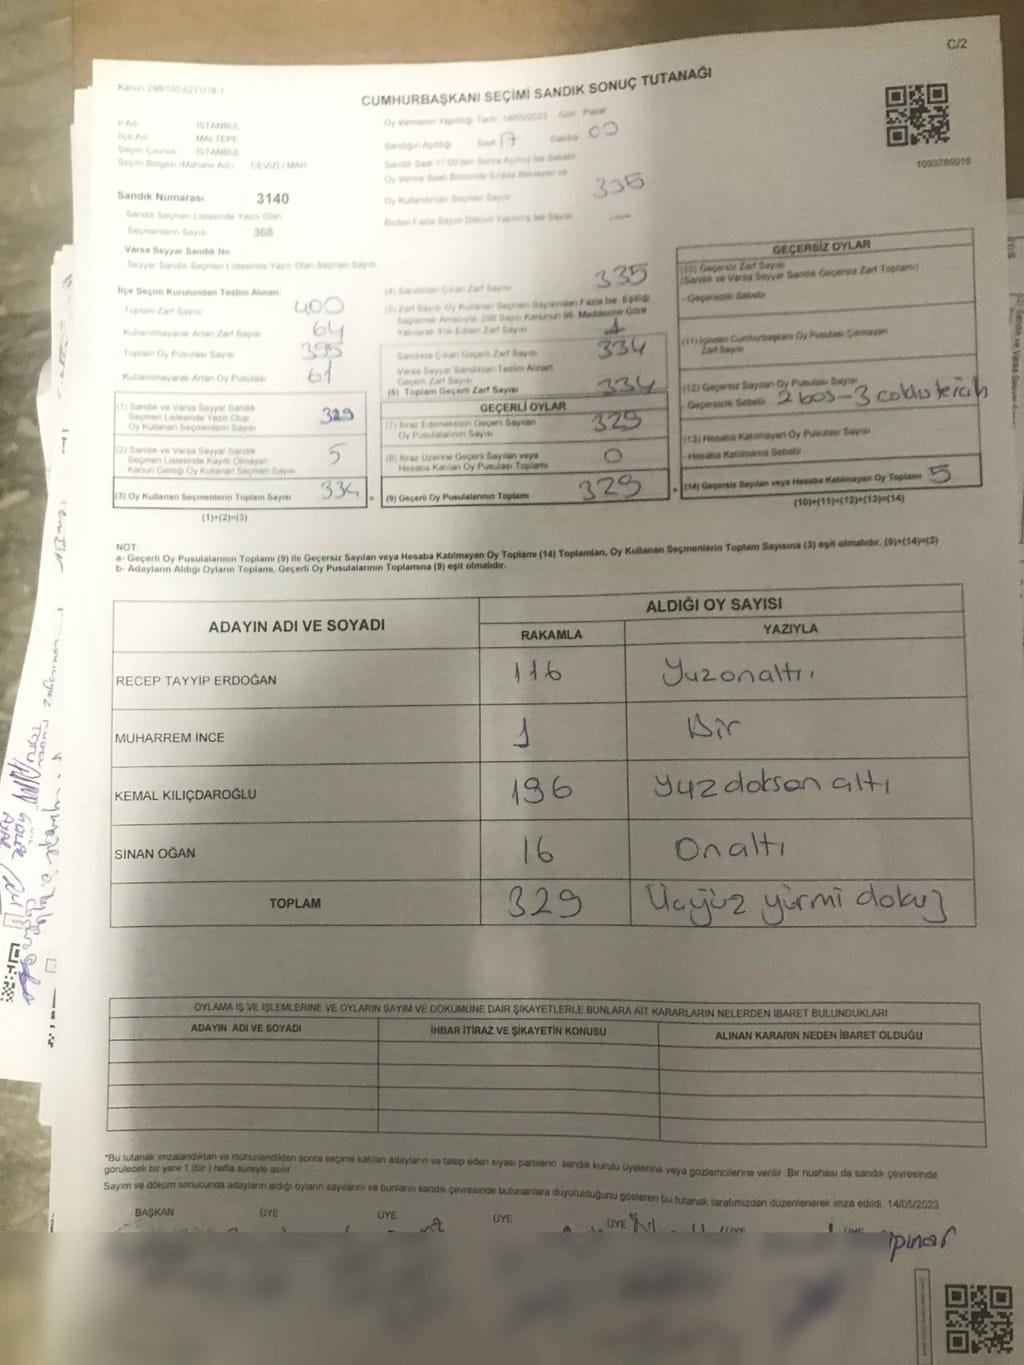 C/2
Kanun 298/105 6271/18-1
CUMHURBAŞKANI SEÇİMİ SANDIK SONUÇ TUTANAĞI
1093785016
İl Adı İSTANBUL
İlçe Adı MALTEPE
Seçim Çevresi İSTANBUL
Seçim Bölgesi (Mahalle Adı) CEVİZLİ MAH
Sandık Numarası 3140
Sandık Seçmen Listesinde Yazılı Olan
Seçmenlerin Sayısı 368
Varsa Seyyar Sandık No
Seyyar Sandık Seçmen Listesinde Yazılı Olan Seçmen Sayısı
Oy Vermenin Yapıldığı Tarih 14/05/2023 Gün Pazar
Sandığın Açıldığı Saat 17 Dakika 00
Sandık Saat 17:00'den Sonra Açılmış İse Sebebi
Oy Verme Saati Bitiminde Sırada Bekleyen ve
Oy Kullandırılan Seçmen Sayısı 335
Birden Fazla Sayım Döküm Yapılmış İse Sayısı —
İlçe Seçim Kurulundan Teslim Alınan:
Toplam Zarf Sayısı 400
Kullanılmayarak Artan Zarf Sayısı 64
Toplam Oy Pusulası Sayısı 395
Kullanılmayarak Artan Oy Pusulası 61
(1) Sandık ve Varsa Seyyar Sandık
Seçmen Listesinde Yazılı Olup
Oy Kullanan Seçmenlerin Sayısı 329
(2) Sandık ve Varsa Seyyar Sandık
Seçmen Listesinde Kayıtlı Olmayan
Kanun Gereği Oy Kullanan Seçmen Sayısı 5
(3) Oy Kullanan Seçmenlerin Toplam Sayısı 334 =
(1)+(2)=(3)
(4) Sandıktan Çıkan Zarf Sayısı 335
(5) Zarf Sayısı Oy Kullanan Seçmen Sayısından Fazla İse, Eşitliği
Sağlamak Amacıyla, 298 Sayılı Kanunun 98. Maddesine Göre
Yakılarak Yok Edilen Zarf Sayısı 1
Sandıkta Çıkan Geçerli Zarf Sayısı 334
Varsa Seyyar Sandıktan Teslim Alınan
Geçerli Zarf Sayısı
(6) Toplam Geçerli Zarf Sayısı 334
GEÇERLİ OYLAR
(7) İtiraz Edilmeksizin Geçerli Sayılan
Oy Pusulalarının Sayısı 329
(8) İtiraz Üzerine Geçerli Sayılan veya
Hesaba Katılan Oy Pusulası Toplamı 0
(9) Geçerli Oy Pusulalarının Toplamı 329 +
GEÇERSİZ OYLAR
(10) Geçersiz Zarf Sayısı
(Sandık ve Varsa Seyyar Sandık Geçersiz Zarf Toplamı)
- Geçersizlik Sebebi
(11) İçinden Cumhurbaşkanı Oy Pusulası Çıkmayan
Zarf Sayısı
(12) Geçersiz Sayılan Oy Pusulası Sayısı
- Geçersizlik Sebebi 2 boş - 3 çoklu tercih
(13) Hesaba Katılmayan Oy Pusulası Sayısı
- Hesaba Katılmama Sebebi
(14) Geçersiz Sayılan veya Hesaba Katılmayan Oy Toplamı 5
(10)+(11)+(12)+(13)=(14)
NOT:
a- Geçerli Oy Pusulalarının Toplamı (9) ile Geçersiz Sayılan veya Hesaba Katılmayan Oy Toplamı (14) Toplamları, Oy Kullanan Seçmenlerin Toplam Sayısına (3) eşit olmalıdır. (9)+(14)=(3)
b- Adayların Aldığı Oyların Toplamı, Geçerli Oy Pusulalarının Toplamına (9) eşit olmalıdır.
ADAYIN ADI VE SOYADI ALDIĞI OY SAYISI
RAKAMLA YAZIYLA
RECEP TAYYİP ERDOĞAN 116 Yuzonaltı
MUHARREM İNCE 1 Bir
KEMAL KILIÇDAROĞLU 196 Yuzdoksan altı
SİNAN OĞAN 16 Onaltı
TOPLAM 329 Üçyüz yirmi dokuz
OYLAMA İŞ VE İŞLEMLERİNE VE OYLARIN SAYIM VE DÖKÜMÜNE DAİR ŞİKAYETLERLE BUNLARA AİT KARARLARIN NELERDEN İBARET BULUNDUKLARI
ADAYIN ADI VE SOYADI İHBAR İTİRAZ VE ŞİKAYETİN KONUSU ALINAN KARARIN NEDEN İBARET OLDUĞU
*Bu tutanak imzalandıktan ve mühürlendikten sonra seçime katılan adayların ve talep eden siyasi partilerin sandık kurulu üyelerine veya gözlemcilerine verilir. Bir nüshası da sandık çevresinde
görülecek bir yere 1 (bir) hafta süreyle asılır.
Sayım ve döküm sonucunda adayların aldığı oyların sayılarını ve bunların sandık çevresinde bulunanlara duyurulduğunu gösteren bu tutanak tarafımızdan düzenlenerek imza edildi. 14/05/2023
BAŞKAN ÜYE ÜYE ÜYE ÜYE ÜYE ÜYE